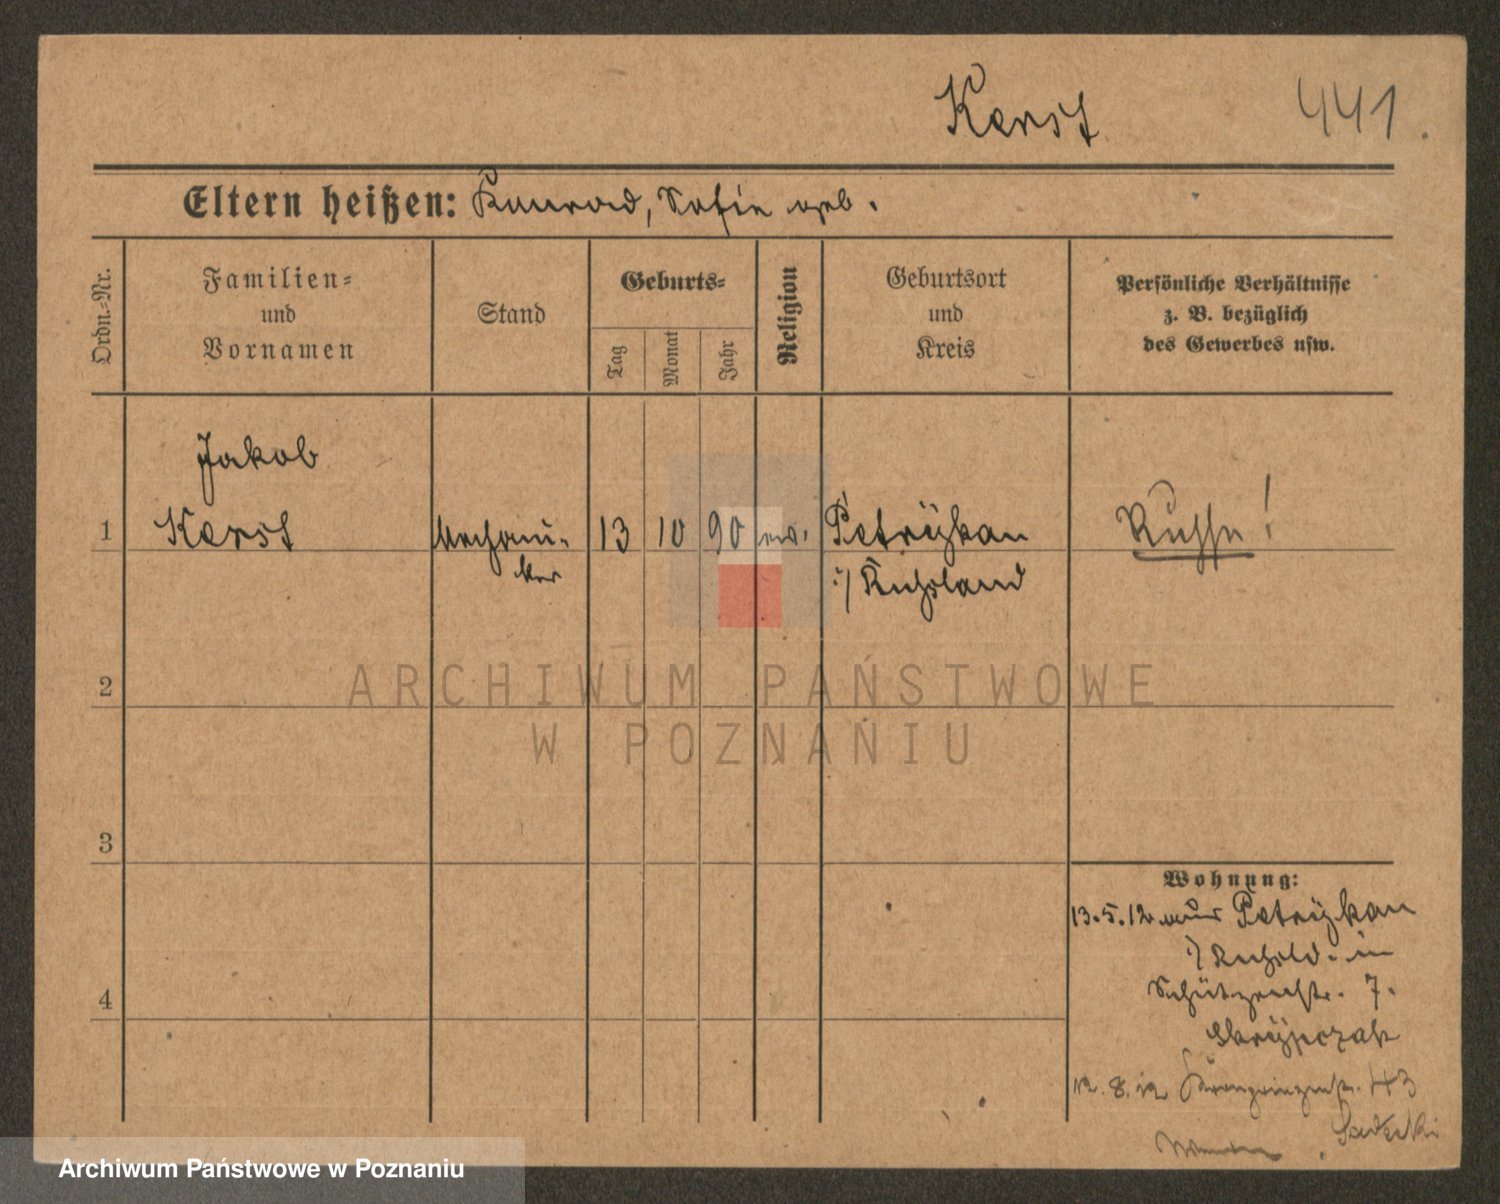 Kerst 441.
Eltern heißen: Konrad, Sofie geb.
Ordn.-Nr.
Familien-
und
Vornamen
Stand
Geburts-
Tag
Monat
Jahr
Religion
Geburtsort
und
Kreis
Persönliche Verhältnisse
z. B. bezüglich
des Gewerbes usw.
Jakob
1 Kerst Mechani- 13 10 90 ev. Petrijkau Russe!
ker i/ Russland
2
3
4
Wohnung:
13.5.12 aus Petrijkau
i/ Russld. in
Schützenstr. 7.
Skrzypczak
12.8.12 Kronprinzenstr. 43
Sadecki
ARCHIWUM PAŃSTWOWE
W POZNANIU
Archiwum Państwowe w Poznaniu